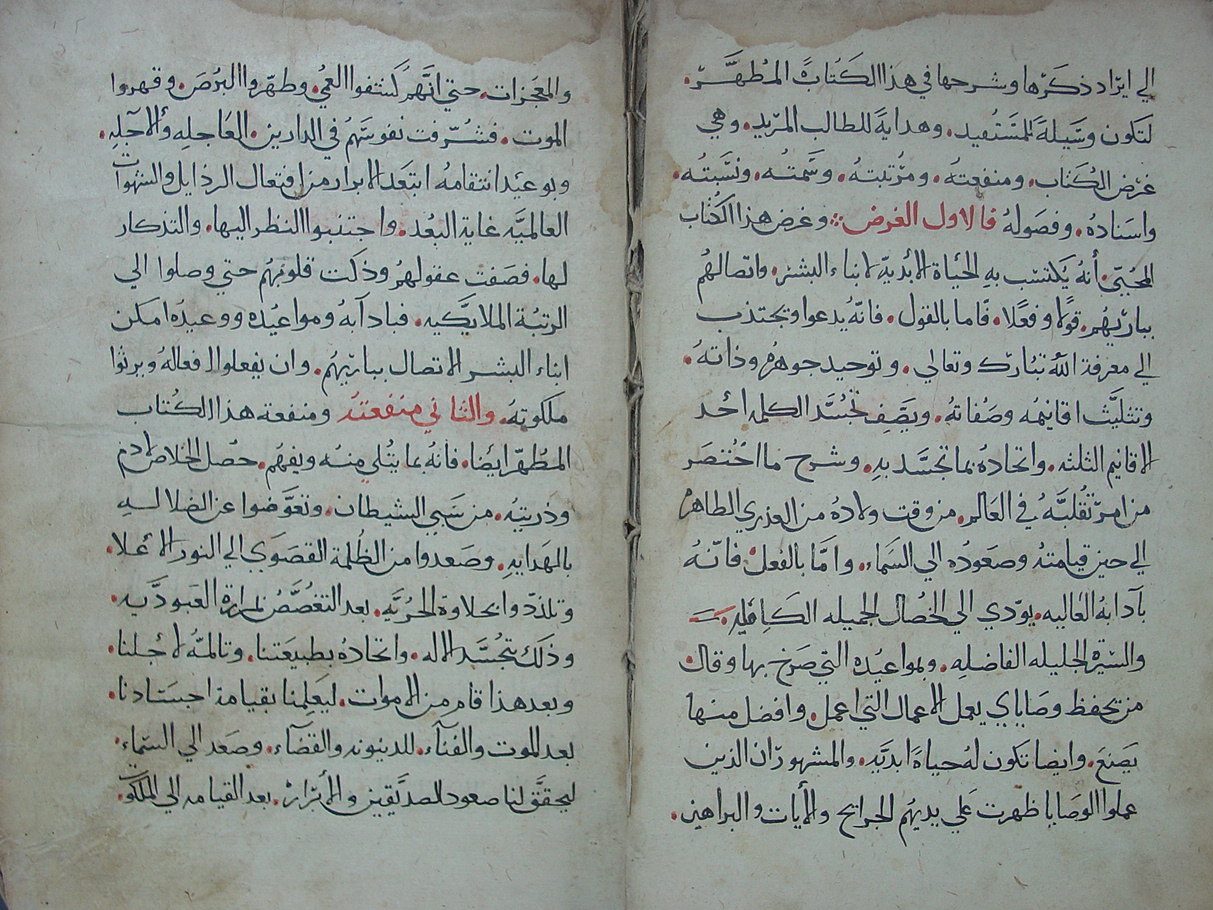 الي ايراد ذكرها وشرحها في هذا الكتاب المطهر.
لتكون وسيلة للمستفيد. وهداية للطالب المريد. وهي
غرض الكتاب. ومنفعته. ومرتبته. وسمته. ونسبته.
واسناده. وفصوله فالاول الغرض: وغرض هذا الكتاب
المحيي. أنه يكتسب به الحياة الابدية لابناء البشر. واتصالهم
بباريهم. قولا وفعلا. فاما بالقول. فانه يدعوا ويجتذب
الي معرفة الله تبارك وتعالي. وتوحيد جوهره وذاته.
وتثليث اقانيمه وصفاته. ويصف تجسد الكلمه احد
الاقانيم الثلثه. واتحاده بما تجسد به. وشرح ما اختصر
من امر تقلبه في العالم. من وقت ولاده من العذري الطاهره
الي حين قيامته وصعوده الي السماء. وامّا بالفعل. فانه
بآدابه العاليه. يودي الي الخصال الجميله الكامله.
والسيرة الجليله الفاضله. وبمواعيده التي صرح بها وقال
من يحفظ وصاياي يعمل الاعمال التي اعمل. وافضل منها
يصنع. وايضا تكون له حياة ابديه. والمشهور ان الذين
عملوا الوصايا ظهرت علي يديهم الجرايح والأيات والبراهين.
والمعجزات. حتي انهم كشفوا العمي. وطهروا البرص. وقهروا
الموت. فشرفت نفوسهم في الدارين. العاجله والآجله.
وبوعيد انتقامه ابتعد الابرار من افتعال الرذايل والشهوات
العالميه غاية البعد. واجتنبوا النظر اليها. والتذكار
لها. فصفت عقولهم وذكت قلوبهم حتي وصلوا الي
الرتبة الملايكيه. فبادآبه ومواعيده ووعيده امكن
ابناء البشر الاتصال بباريهم. وان يفعلوا افعاله ويرثوا
ملكوته. والثاني منفعته ومنفعة هذا الكتاب
المطهر ايضا. فانه بما يتلي منه ويفهم. حصل الخلاص لادم
وذريته. من سبي الشيطان. وتعوضوا عن الضلاله
بالهدايه. وصعدوا من الظلمة القصوي الي النور الاعلا.
وتلذدوا بحلاوة الحريه. بعد التغصص بمرارة العبوديه.
وذلك بتجسد الاله. واتحاده بطبيعتنا. وتالمه لاجلنا.
وبعد هذا قام من الاموت. ليعلمنا بقيامة اجسادنا.
بعد الموت والفنآء. للدينونه والقضآء. وصعد الي السماء.
ليحقق لنا صعود الصديقين والأبرار. بعد القيامه الي الملكوت.